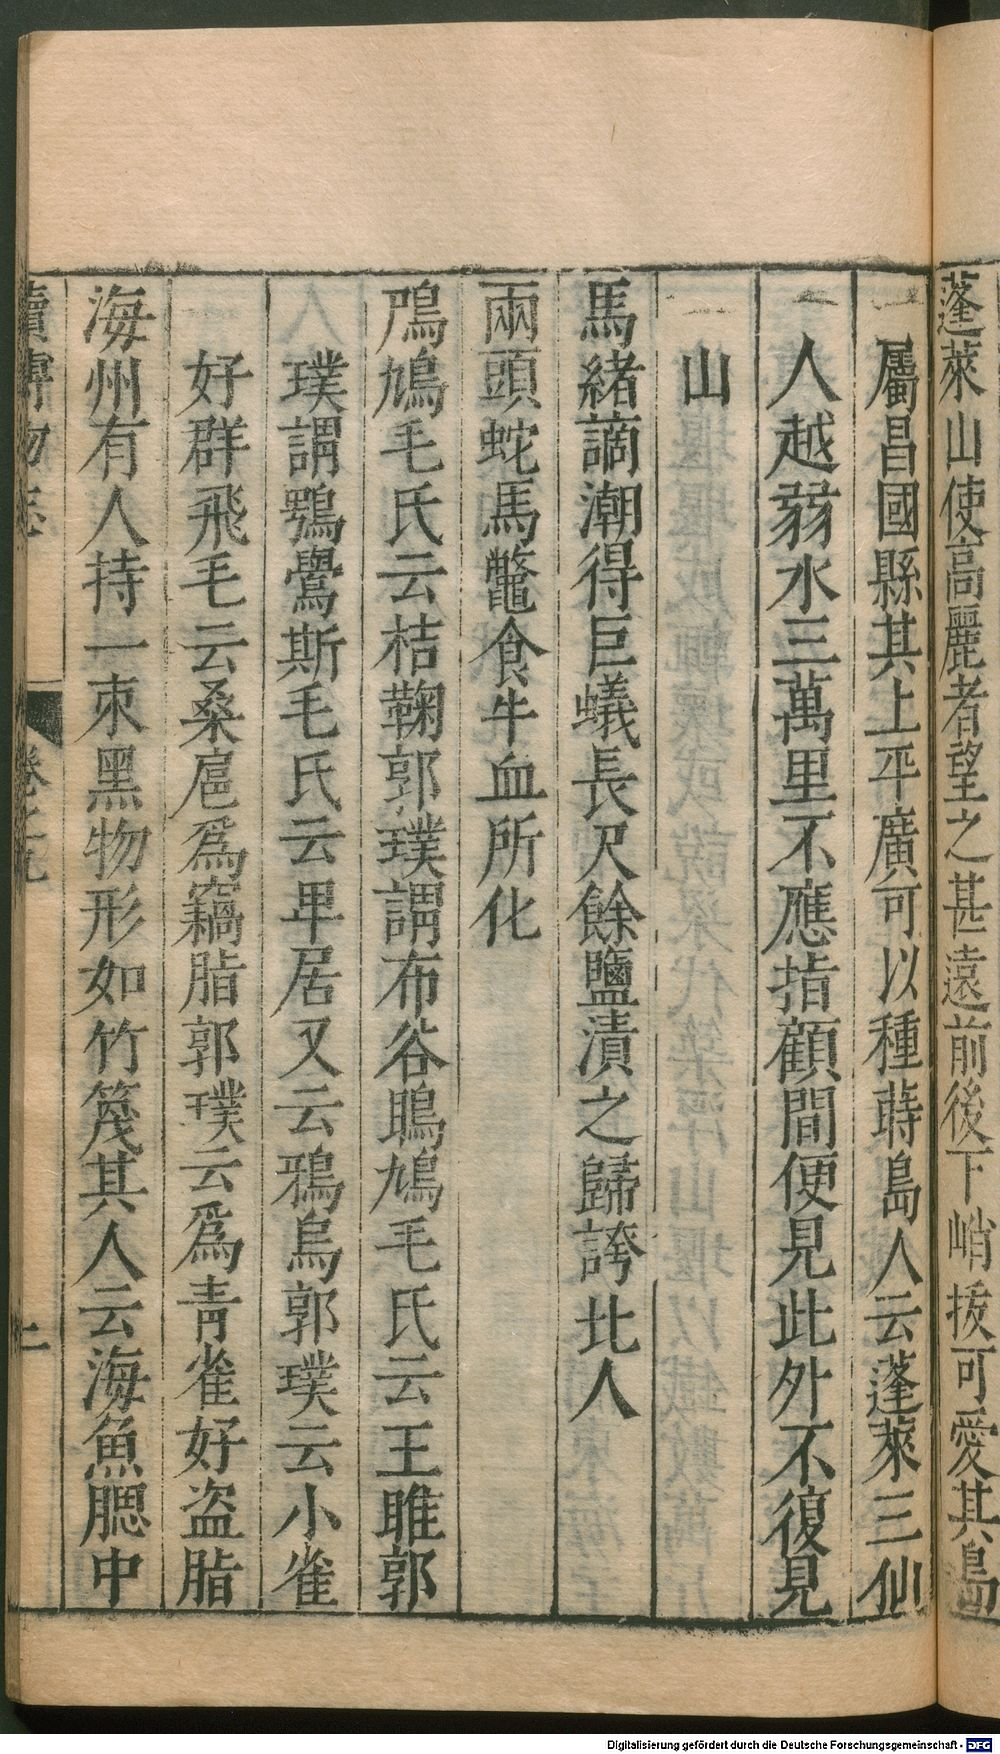 蓬萊山使高麗者望之甚遠前後下峭拔可愛其島
屬昌國縣其上平廣可以種蒔島人云蓬萊三仙
人越弱水三萬里不應指顧間便見此外不復見
山
馬緒謫潮得巨蟻長尺餘鹽漬之歸誇北人
兩頭蛇馬鼈食牛血所化
鳲鳩毛氏云桔鞠郭璞謂布谷鴡鳩毛氏云王雎郭
璞謂鶚鸒斯毛氏云卑居又云鴉烏郭璞云小雀
好群飛毛云桑扈爲竊脂郭璞云爲青雀好盗脂
海州有人持一束黑物形如竹篾其人云海魚腮中
續博物志 卷之九 二
Digitalisierung gefördert durch die Deutsche Forschungsgemeinschaft - DFG